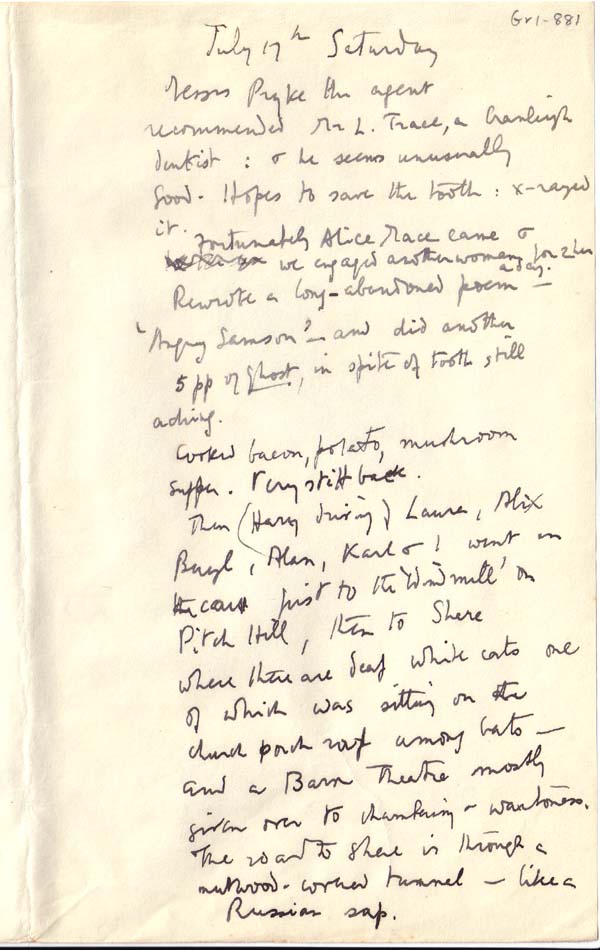 Gr1-881
July 17th Saturday
Messrs Pryke the agent
recommended Mr L. Trace, a Cranleigh
dentist : & he seems unusually
good. Hopes to save the tooth : x-rayed
it.
Fortunately Alice Mace came &
we engaged another woman for 2 hrs
a day.
Rewrote a long-abandoned poem —
'Angry Samson' — and did another
5 pp of Ghost, in spite of tooth still
aching.
Cooked bacon, potato, mushroom
supper. Very stiff back.
Then (Harry driving) Laura, Alix
Beryl, Alan, Karl & I went in
the car first to the 'Windmill' on
Pitch Hill, then to Shere
where there are deaf white cats one
of which was sitting on the
church porch roof among bats —
and a Barn Theatre mostly
given over to chambering & wantoness.
The road to Shere is through a
nutwood-covered tunnel — like a
Russian sap.